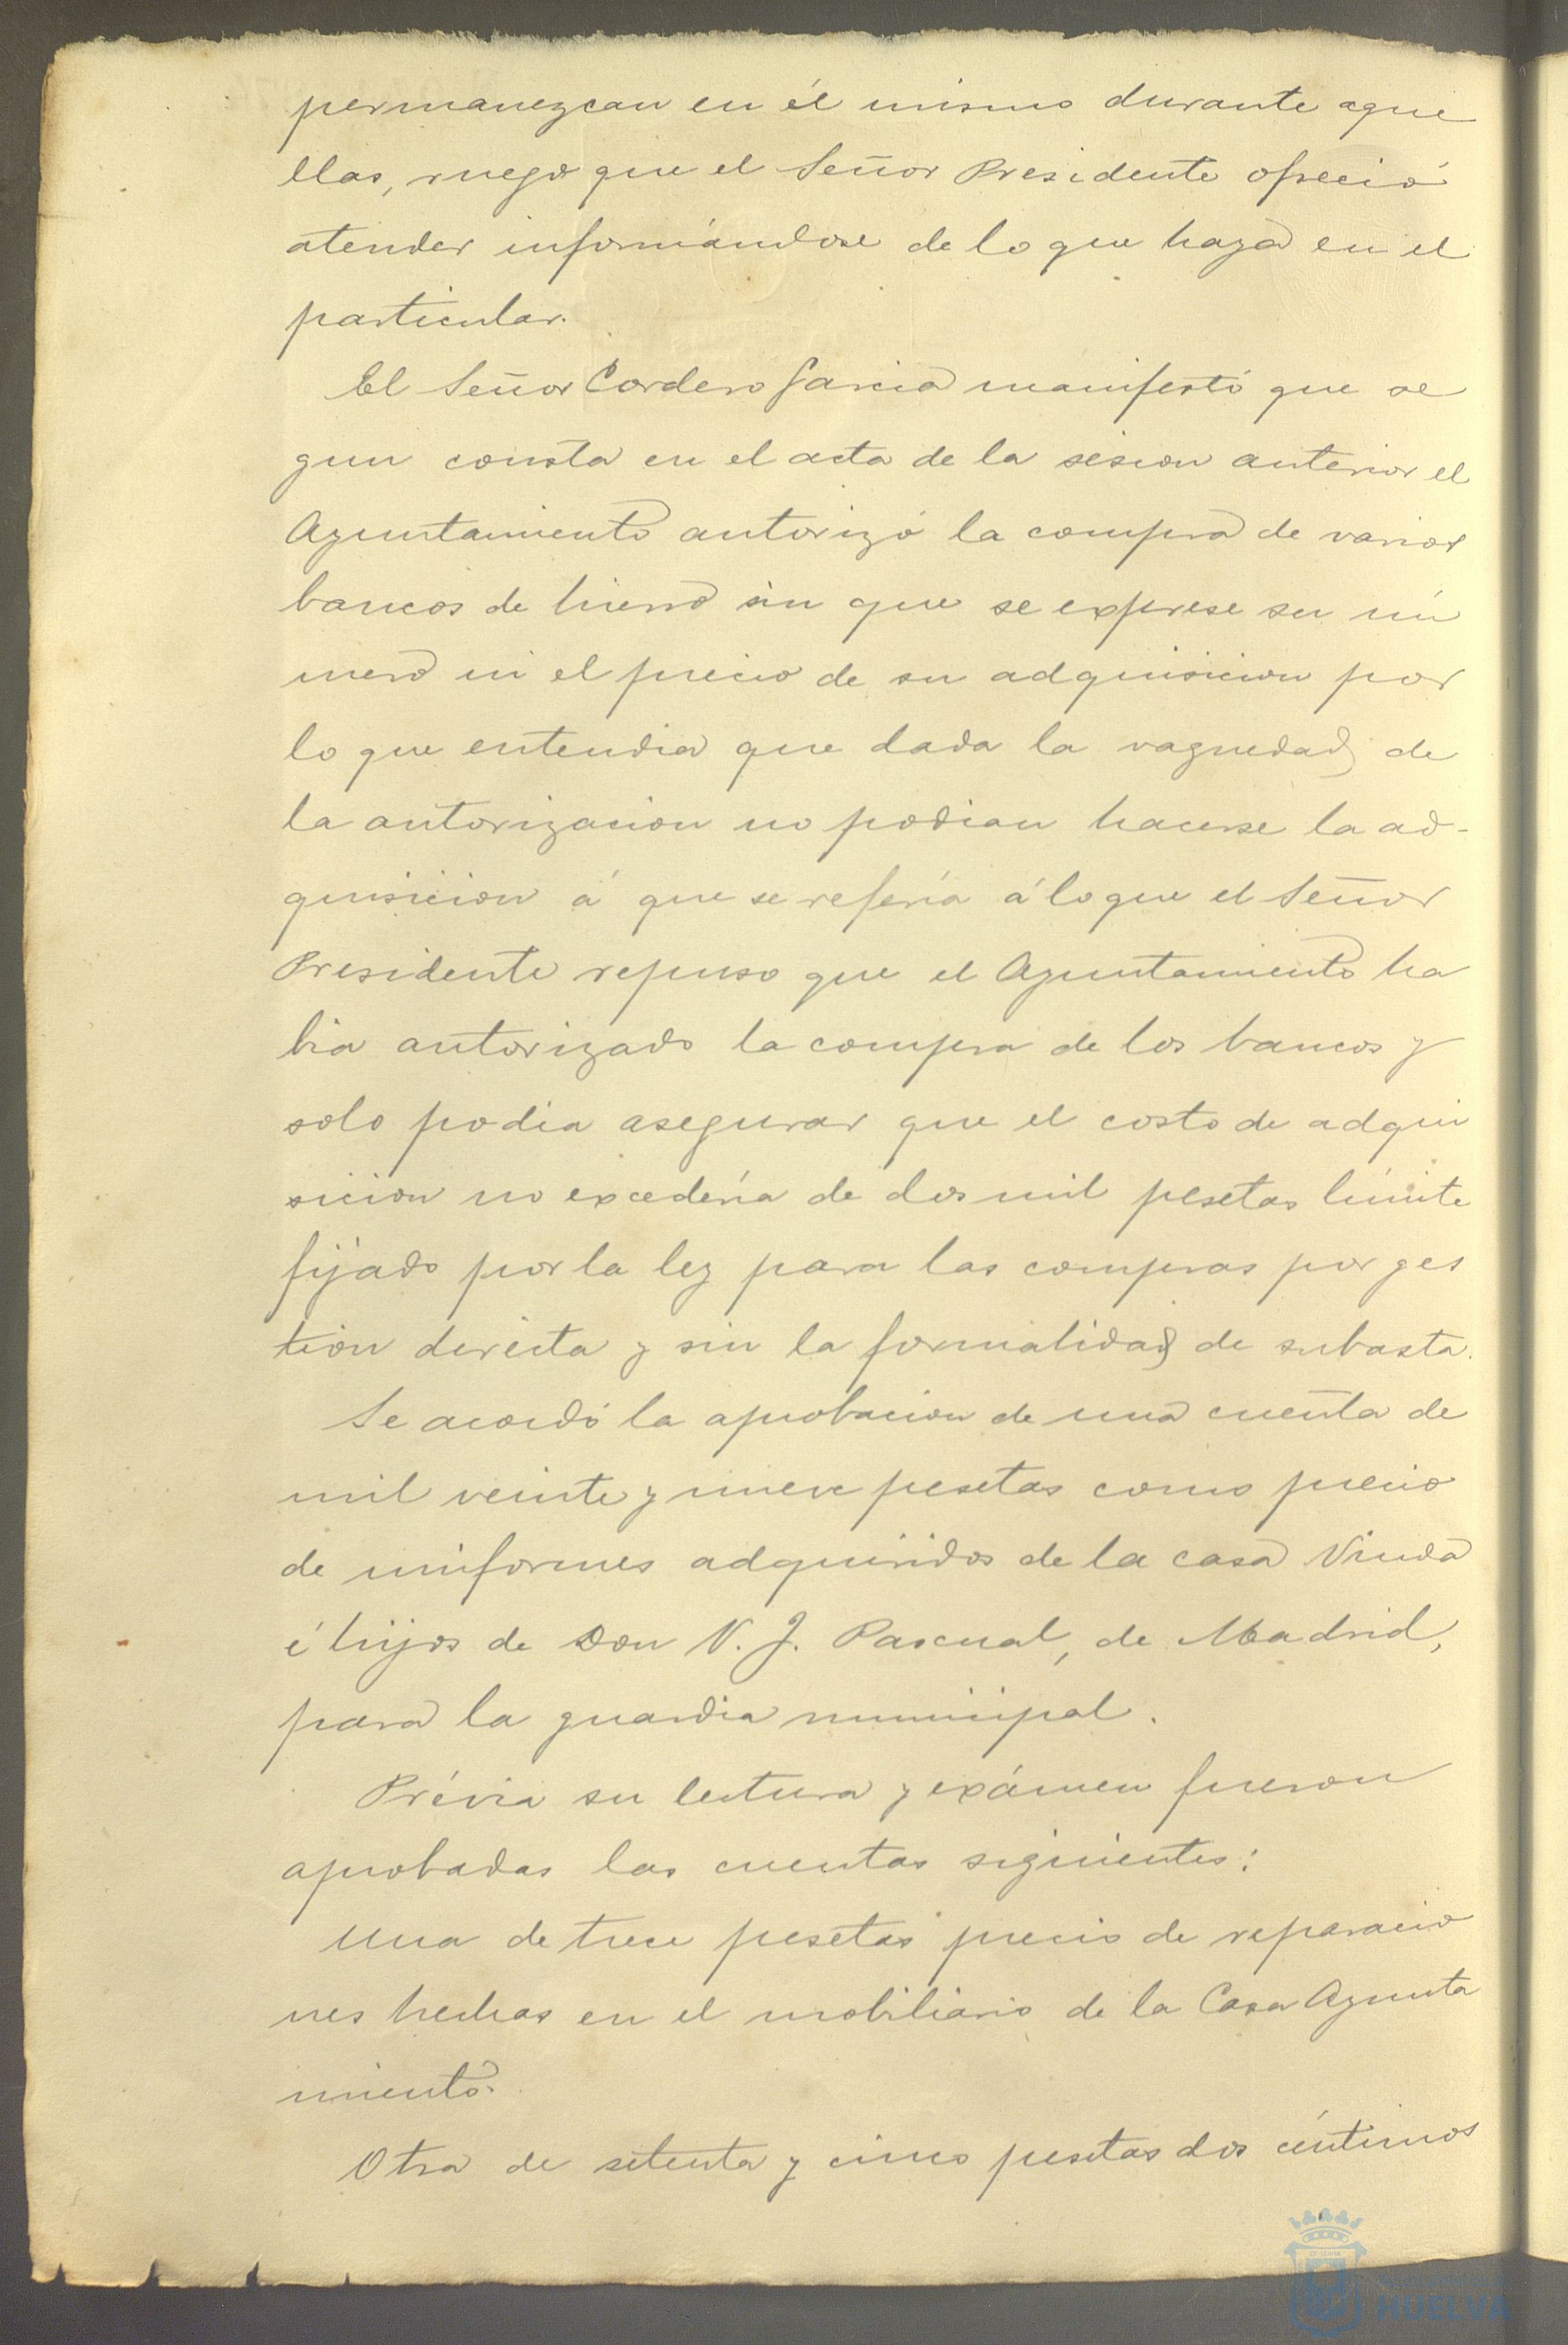 permanezcan en él mismo durante aque
llas, ruego que el Señor Presidente ofreció
atender informándose de lo que haya en el
particular.
El Señor Cordero García manifestó que se
gun consta en el acta de la sesion anterior el
Ayuntamiento autorizó la compra de varios
bancos de hierro sin que se exprese su nú
mero ni el precio de su adquisicion por
lo que entendia que dada la vaguedad de
la autorizacion no podian hacerse la ad-
quisicion á que se refería á lo que el Señor
Presidente repuso que el Ayuntamiento ha
bia autorizado la compra de los bancos y
solo podia asegurar que el costo de adqui
sicion no excedería de dos mil pesetas límite
fijado por la ley para las compras por ges
tion directa y sin la formalidad de subasta.
Se acordó la aprobacion de una cuenta de
mil veinte y nueve pesetas como precio
de uniformes adquiridos de la casa Viuda
é hijos de Don N. J. Pascual, de Madrid,
para la guardia municipal.
Prévia su lectura y exámen fueron
aprobadas las cuentas siguientes:
Una de trece pesetas precio de reparacio
nes hechas en el mobiliario de la Casa Ayunta
miento.
Otra de setenta y cinco pesetas dos céntimos
HUELVA